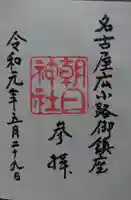 名古屋広小路御鎮座
朝日
神社
参拝
令和元年五月二十九日